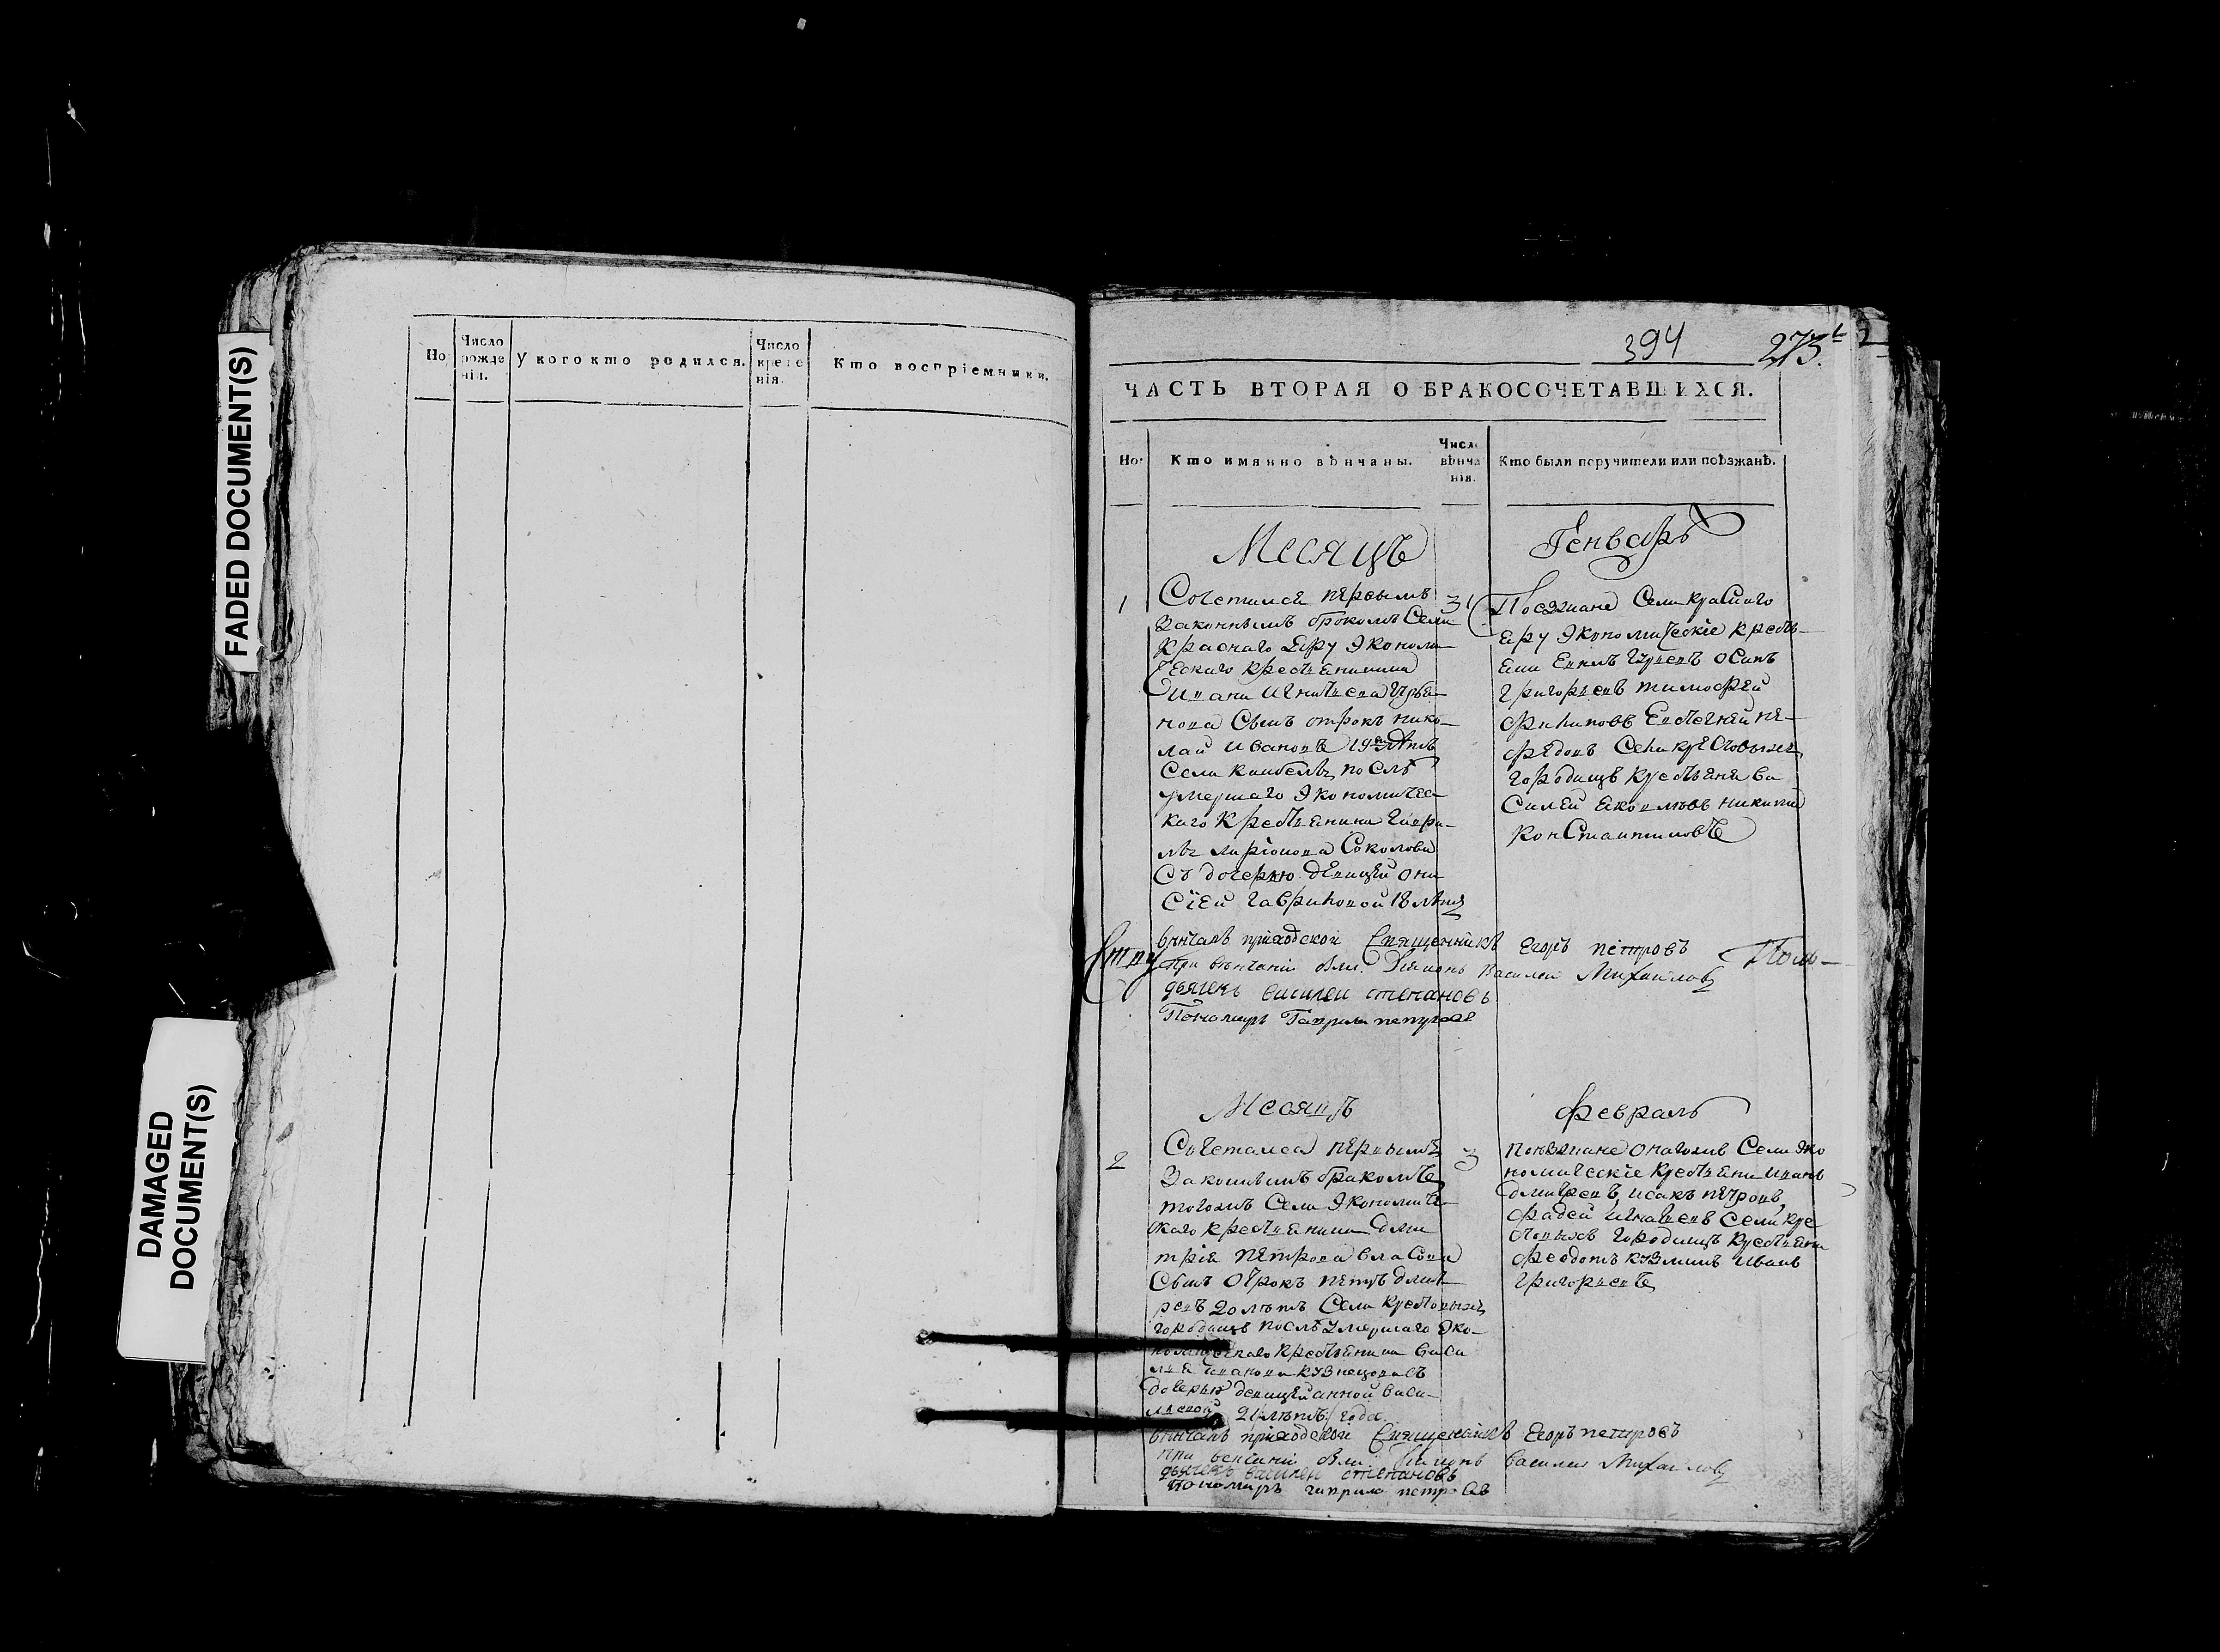 FADED DOCUMENT(S)
DAMAGED
DOCUMENT(S)
Но:
Число
рожде
нія.
у кого кто родился.
Число
креще
нія.
Кто воспріемники.
394
273.
ЧАСТЬ ВТОРАЯ О БРАКОСОЧЕТАВШИХСЯ.
Но:
Кто имянно вѣнчаны.
Числ
вѣнча
нія.
Кто были поручители или поѣзжанѣ.
Месяцъ
Генварь
1
Сочетался первымъ
законнымъ бракомъ Села
Краснаго Яру Экономи
ческаго крестьянина
Ивана Игнатьева
нова Сынъ отрокъ Нико-
лай Ивановъ 19 лѣтъ
Села послѣ
умершаго Экономичес-
каго Крестьянина Гаври-
лы Ларіонова Соколова
Съ дочерью девицей Они
Сіей Гавриловой 18 лѣтъ
31
Поезжане Села Краснаго
Яру Экономическіе кресть-
яни Осипъ
Григорьевъ Тимофей
Филиповъ Евстегней Не-
федовъ Села крестовыхъ
городищъ крестьяня Ва
Силей Яковлевъ Никита
Константиновъ
вѣнчалъ приходской Священникъ Егоръ петровъ
при вѣнчаніи были: Діяконъ Василеи Михаиловъ
дьячекъ василеи степановъ
Пономарь Гаврила петровъ
Месяцъ
февраль
2
Сочетался первымъ
Законнымъ бракомъ
тогожъ Села Экономиче
скаго крестьянина Дми
трія Петрова Власова
Сынъ Отрокъ Петръ Дмит
ревъ 20 лѣтъ Села Крестовыхъ
городищъ послѣ умершаго Эко-
номическаго крестьянина Васи
лья Иванова Кузнецова съ
дочерью девицей Анной Васи-
льевой 21 лѣтъ года.
3
Поезжане Онагожъ Села Эко
номическіе крестьяни Иванъ
Дмитревъ, Исакъ Петровъ,
Фадей Игнатьевъ Села кре
стовыхъ городищъ крестьяни
Феодотъ Кузминъ Иванъ
Григорьевъ
вѣнчалъ приходской Священникъ Егоръ петровъ
при венчаніи были: Діяконъ Василеи Михаиловъ
дьячекъ василеи степановъ
Пономарь гаврила петровъ